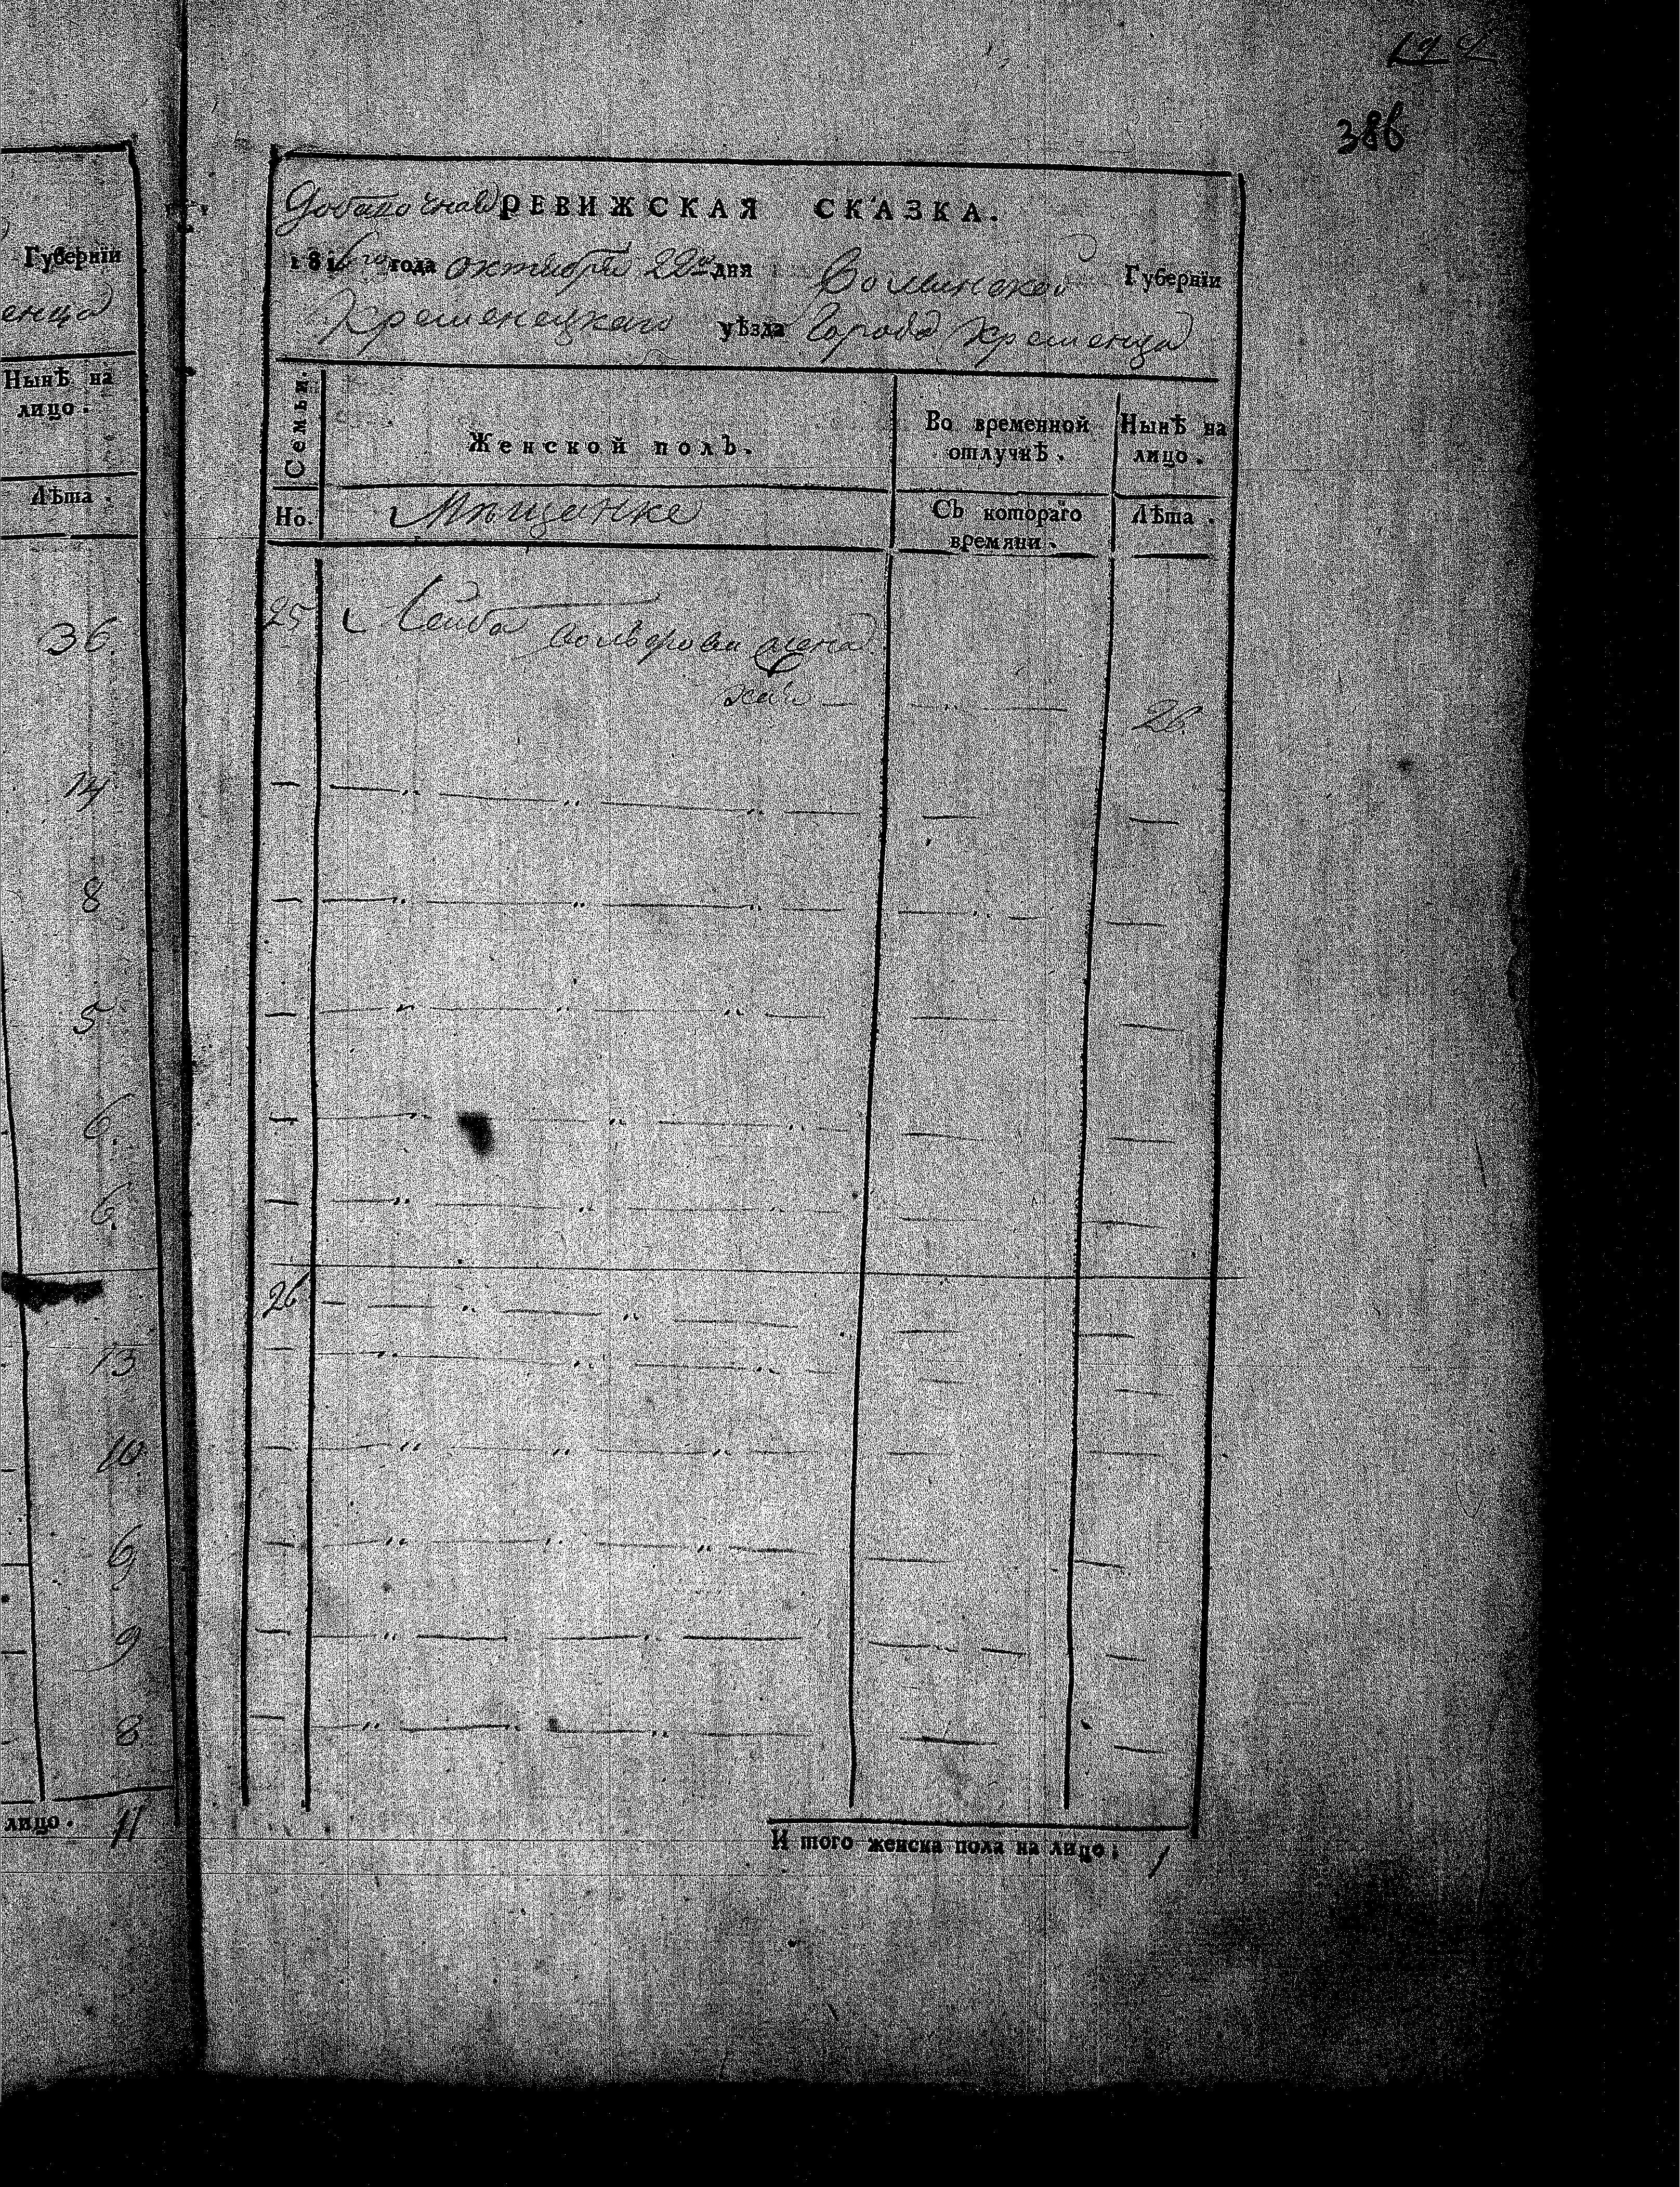 386
Губернїи
енца
Нынѣ на
лицо.
Лѣта.
36.
14
8
5
6.
6.
13
10
6
9
8
лицо. 11
Добавочная РЕВИЖСКАЯ СКАЗКА.
1816го года октября 22го дня Волынской Губернїи
Кременецкаго уѣзда Города Кременца
Семьи.
Женской полъ.
Во временной
отлучкѣ.
Нынѣ на
лицо.
Но.
Мещанке
Съ котораго
времяни.
Лѣта.
25 Лейба Вольфрови жена
26
И того женска пола на лицо: 1